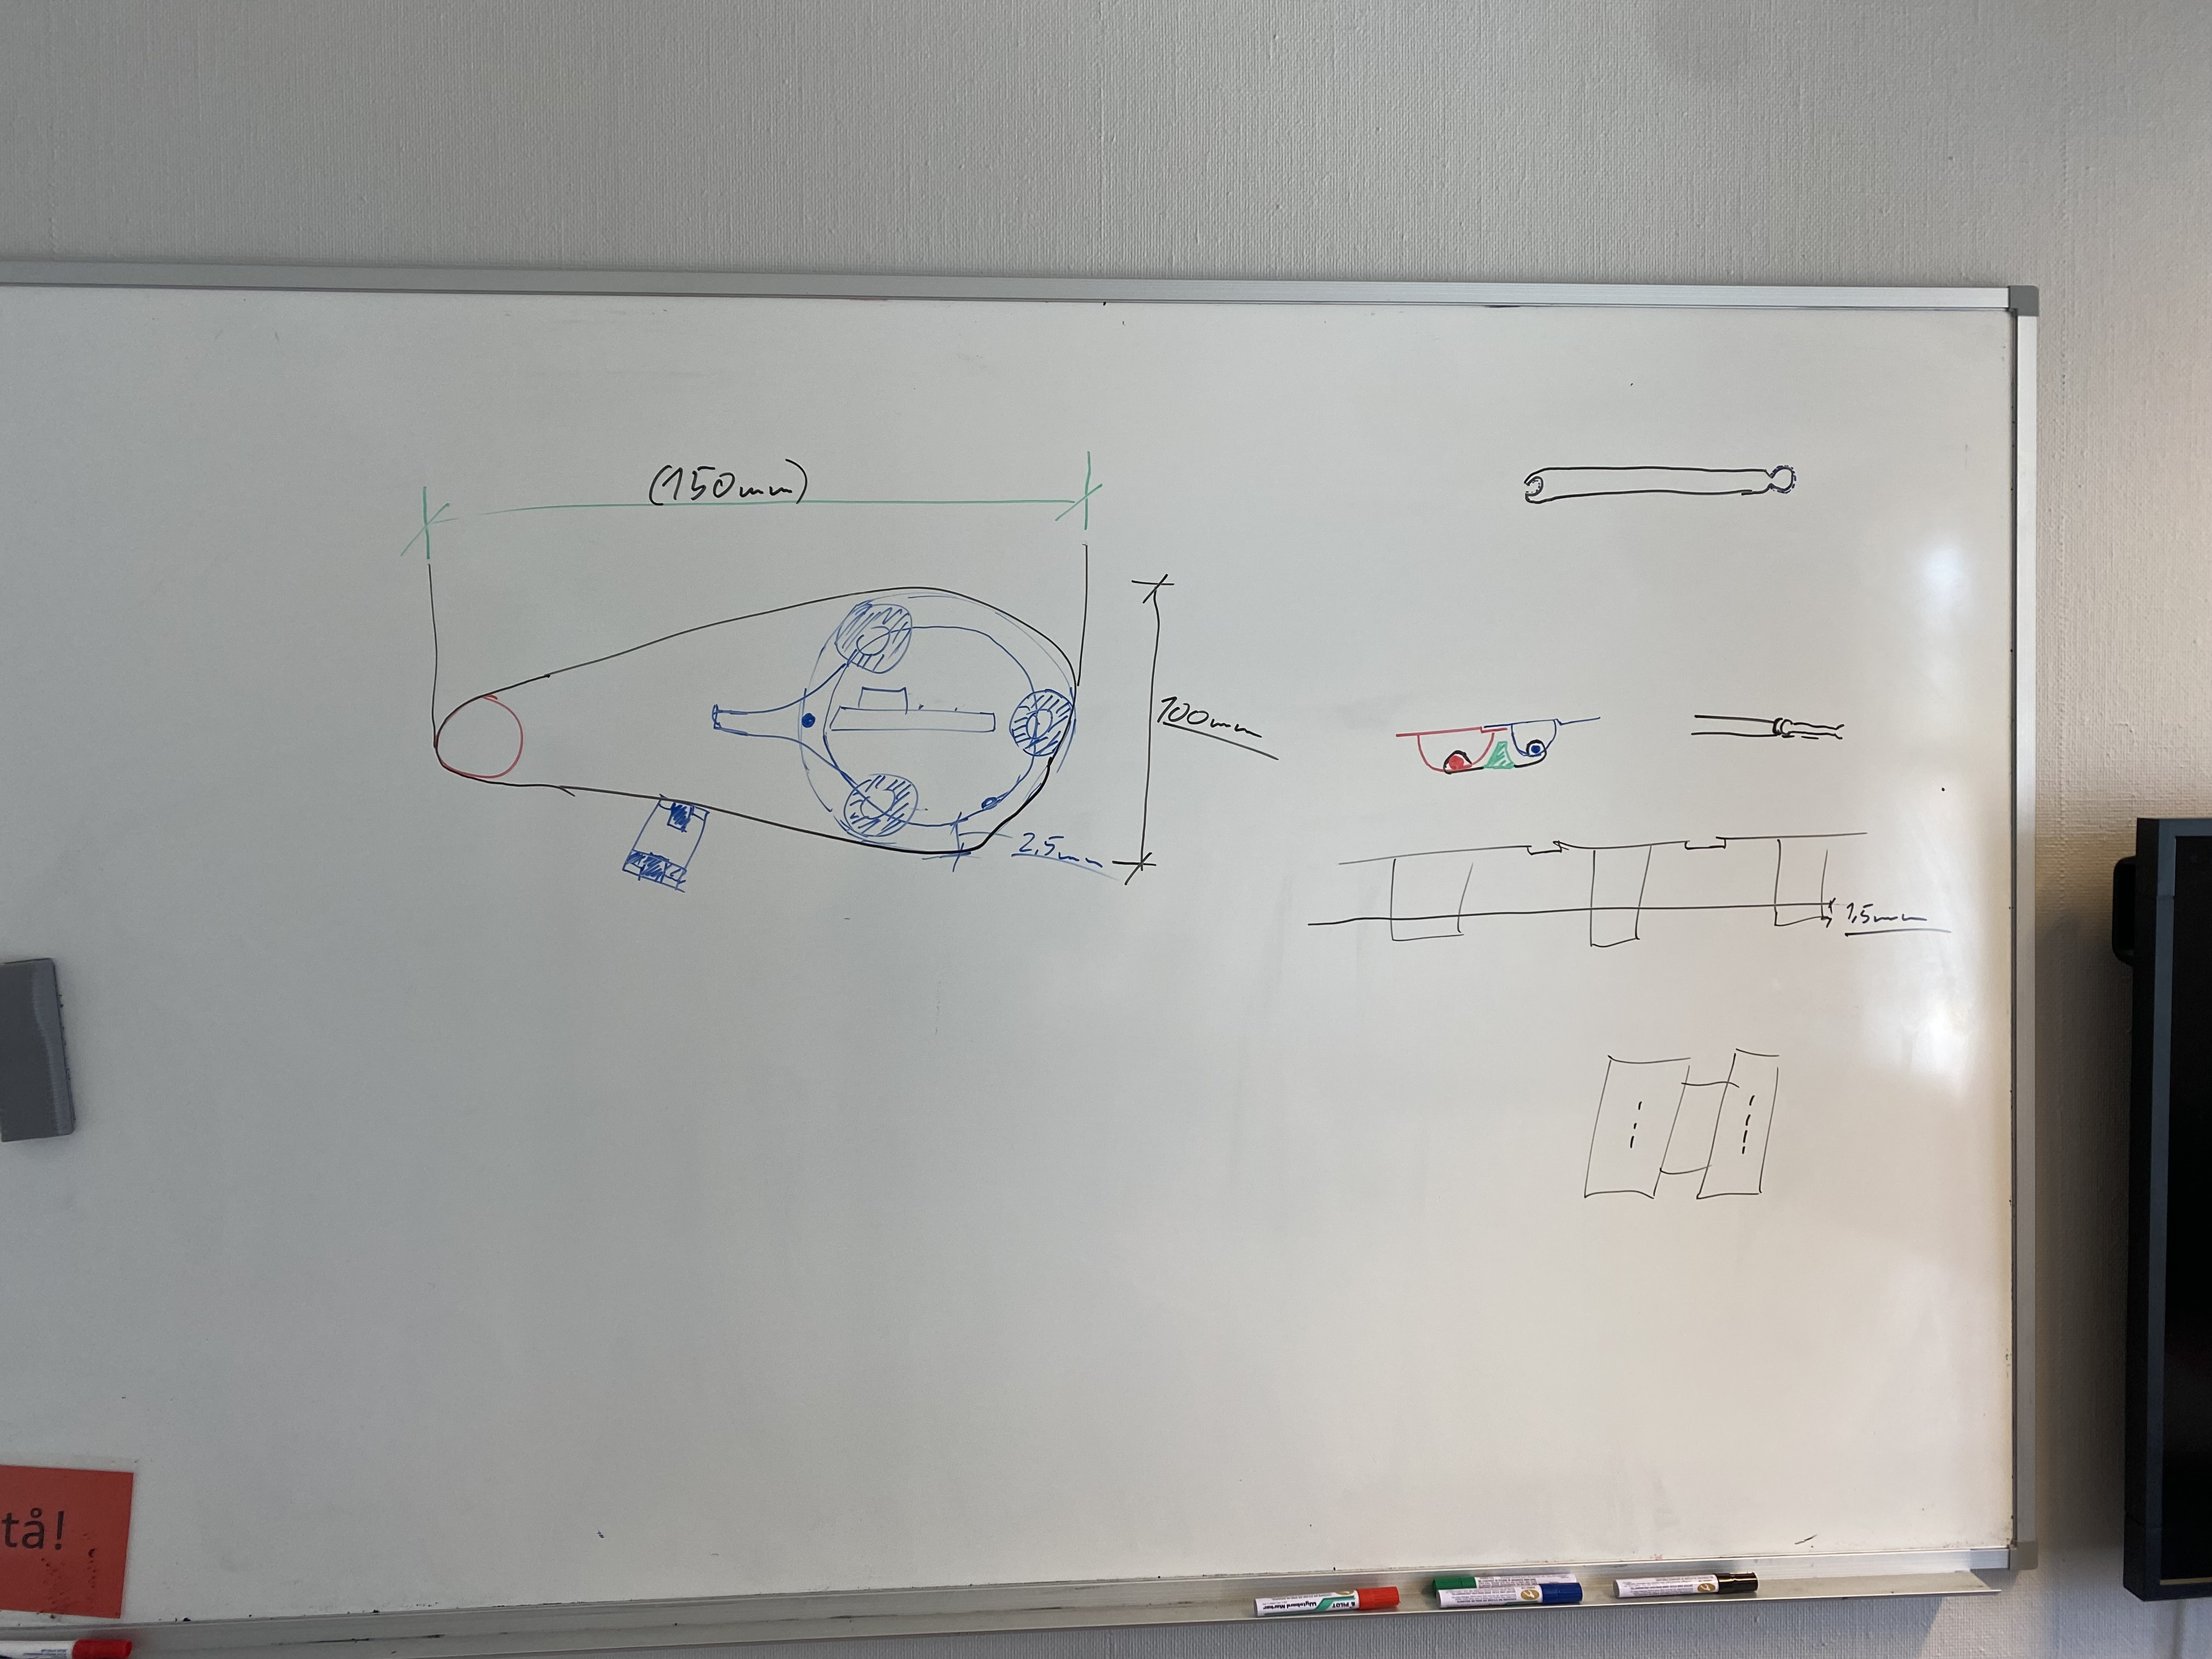 (150mm)
100mm
2,5mm
1,5mm
tå!
PILOT